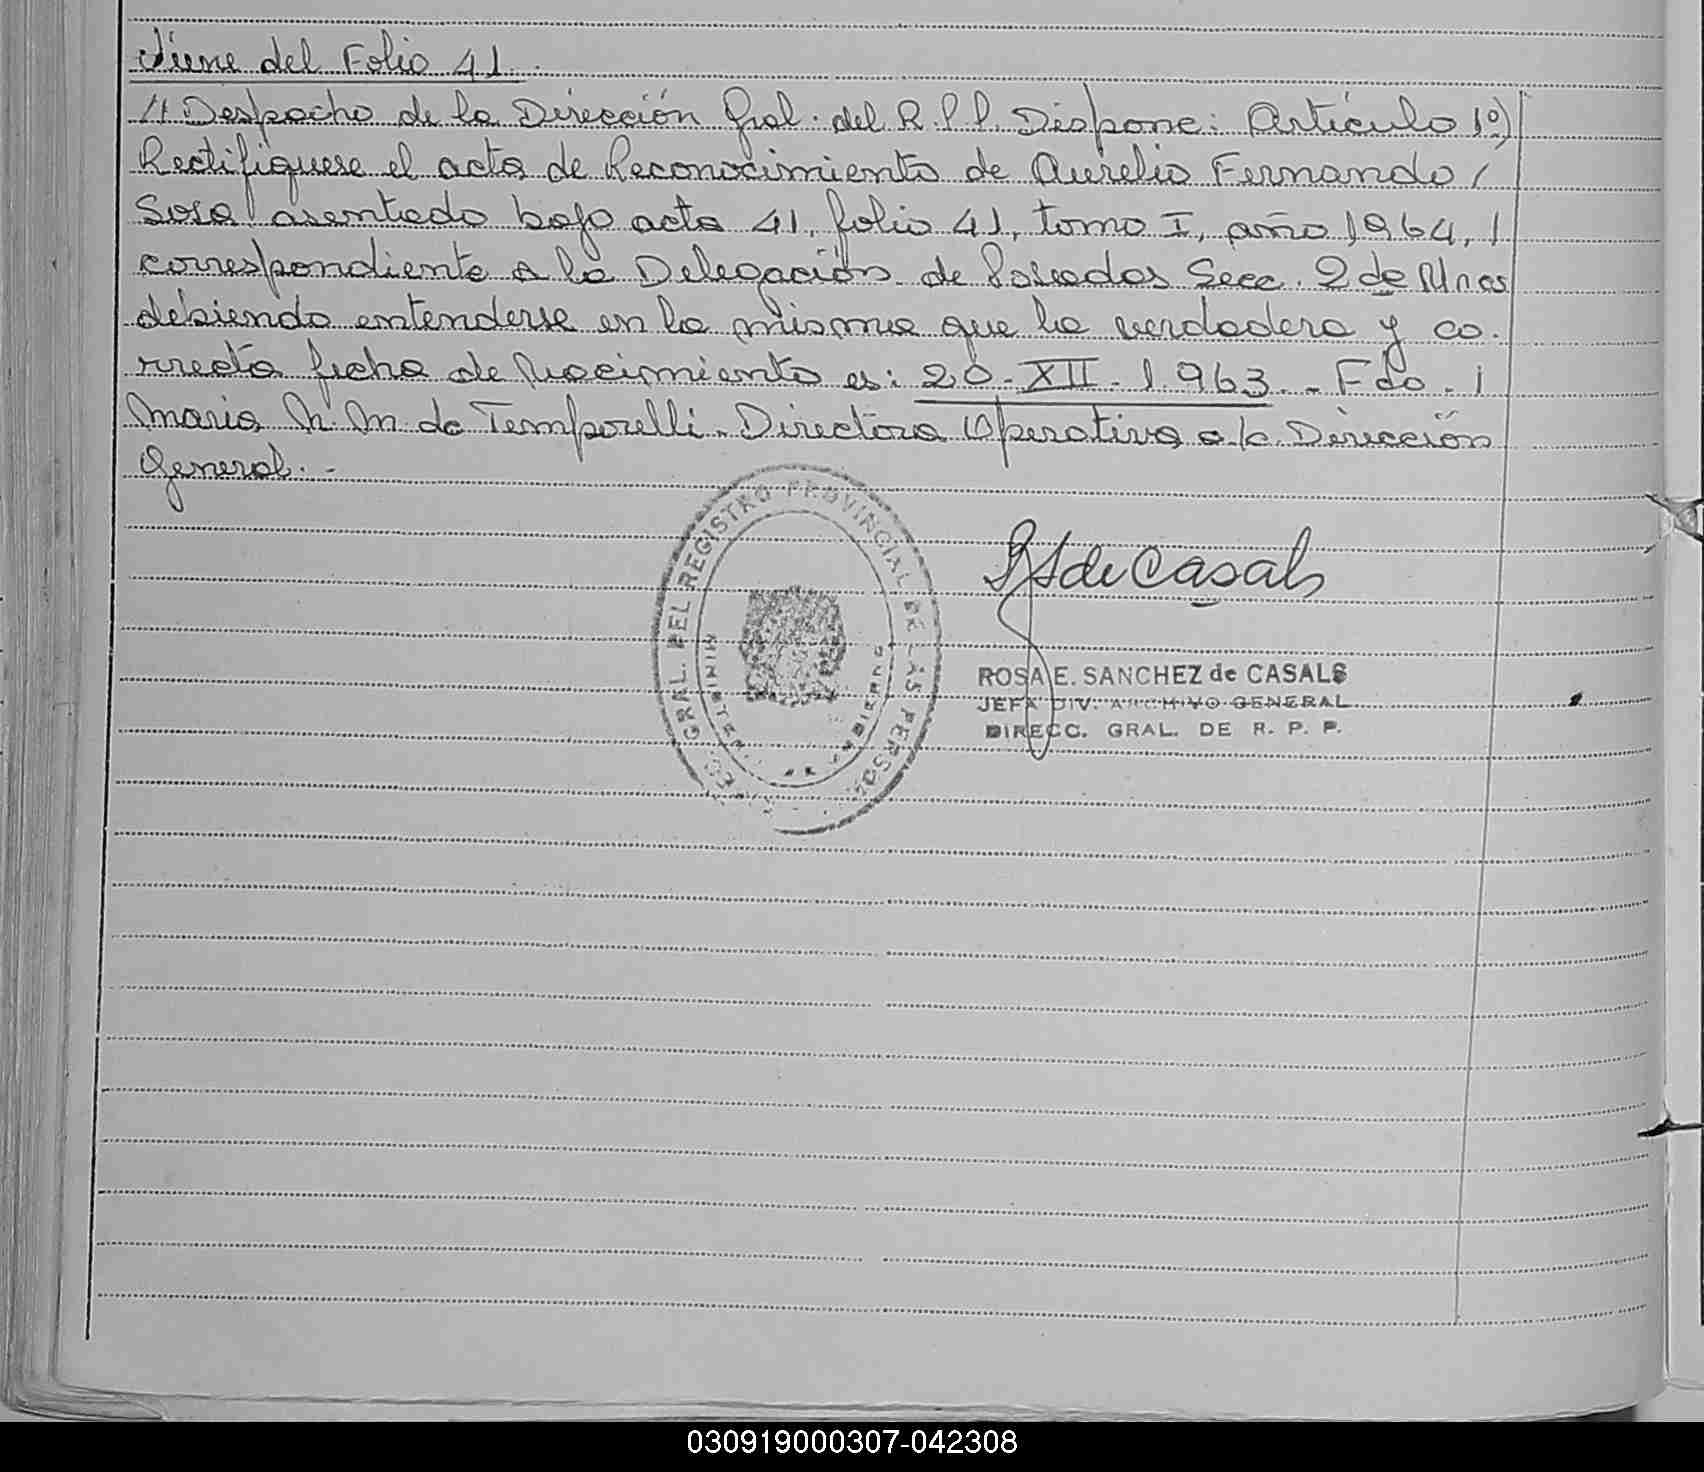 Viene del Folio 41.
// Despacho de la Dirección Gral. del R.P.P. Dispone: Artículo 1º)
Rectifíquese el acta de Reconocimiento de Aurelio Fernando /
Sosa asentado bajo acta 41, folio 41, tomo I, año 1964, /
correspondiente a la Delegación de Posadas Secc. 2 de Mnes
debiendo entenderse en la misma que la verdadera y co-
rrecta fecha de Nacimiento es: 20-XII-1.963.- Fdo.
Maria N. M. de Temporelli. Directora Operativa a/c Dirección
General.-
GRAL. DEL REGISTRO PROVINCIAL DE LAS PERSO
R S de Casals
ROSA E. SANCHEZ de CASALS
JEFA DIV. ARCHIVO GENERAL
DIRECC. GRAL. DE R. P. P.
030919000307-042308